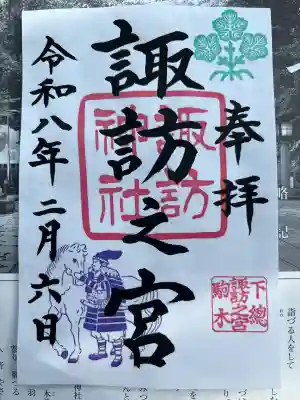 奉拝
諏訪之宮
諏訪
神社
令和八年二月六日
下總
諏訪之宮
駒木
略
記
詣づる人をして